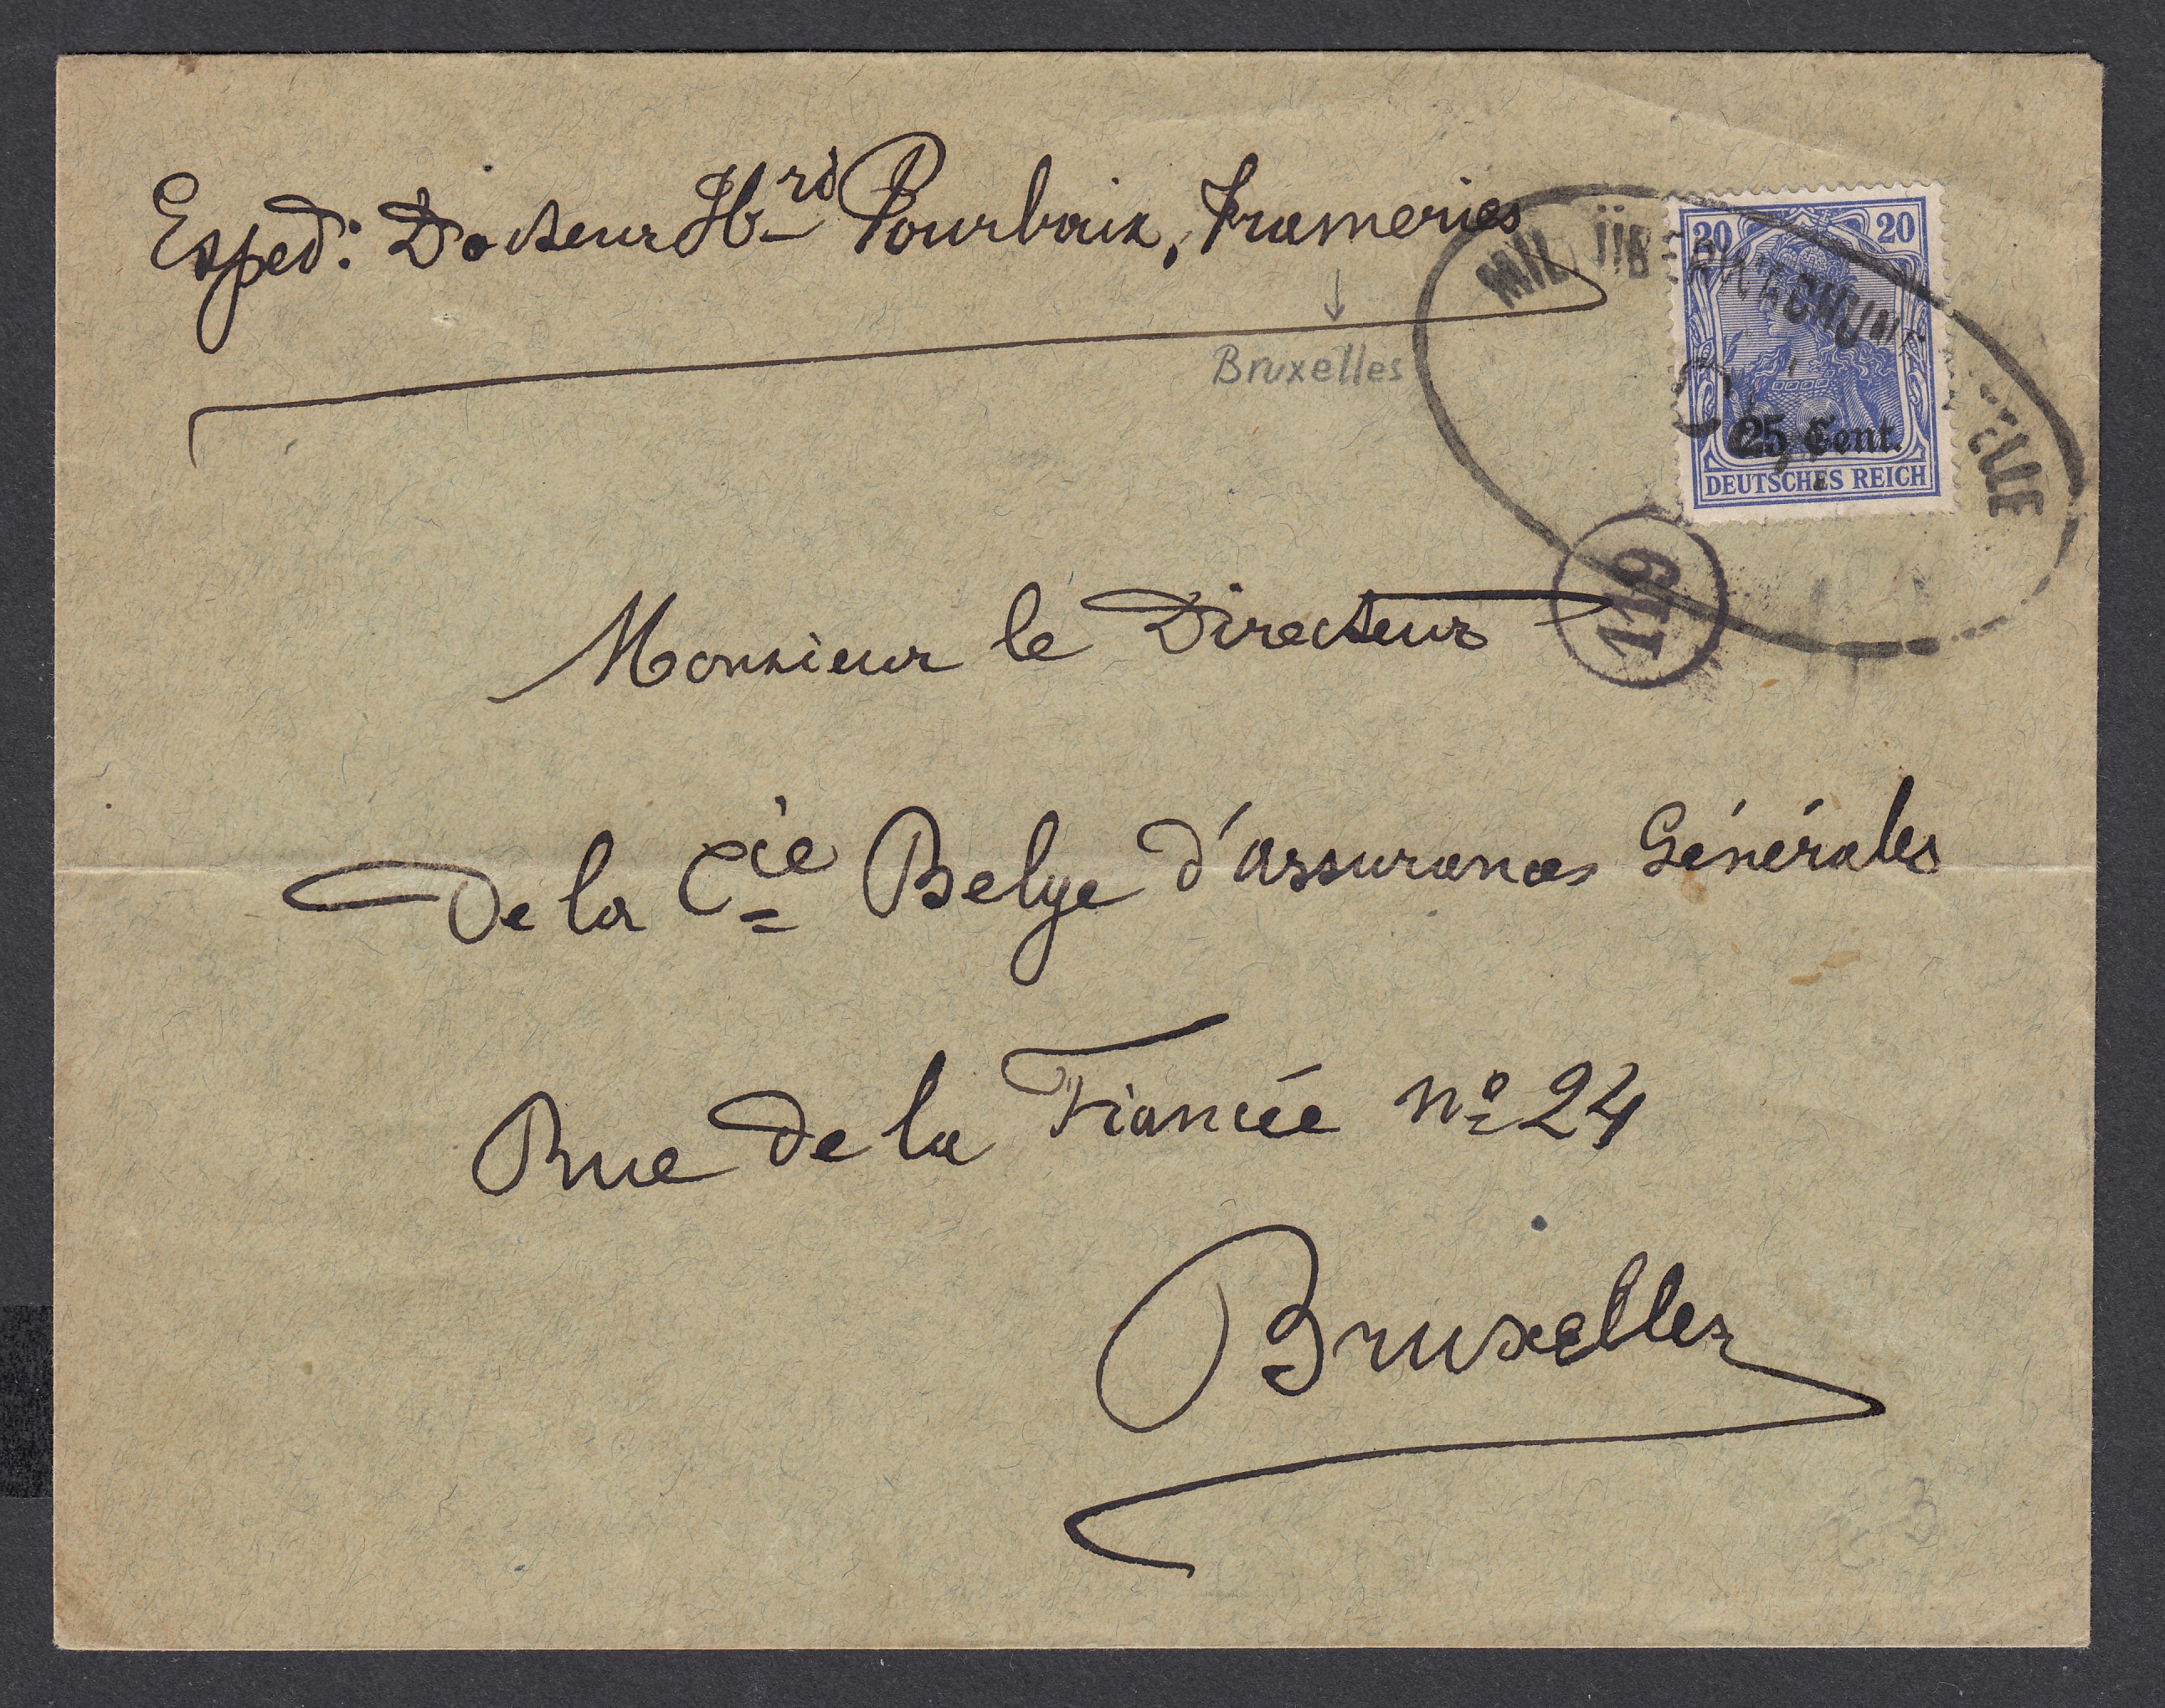 Exped: Docteur Hri Pourbaix, Frameries
Bruxelles
MIL ÜBERWACHUNG
20 20
25 Cent.
DEUTSCHES REICH
119
Monsieur le Directeur
De la Cie Belge d'assurances Générales
Rue de la Fiancée no 24
Bruxelles
3